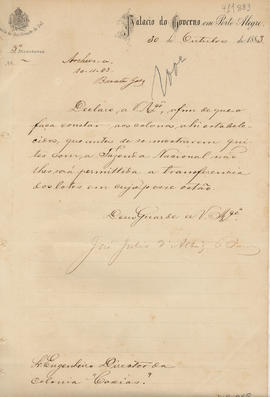 Palacio do Governo em Porto Alegre,
30 de Outubro de 1883
Archive-se
Declaro a V. Mcê, afim de que o
faça constar aos colonos ahi estabele-
cidos, que antes de se mostrarem qui-
tes com a Fazenda Nacional não
lhes será permittida a transferencia
dos lotes em cuja posse estão.
Deus Guarde a V. Mcê
José Julio d'Alb
Sr. Engenheiro Director da
colonia "Caxias".